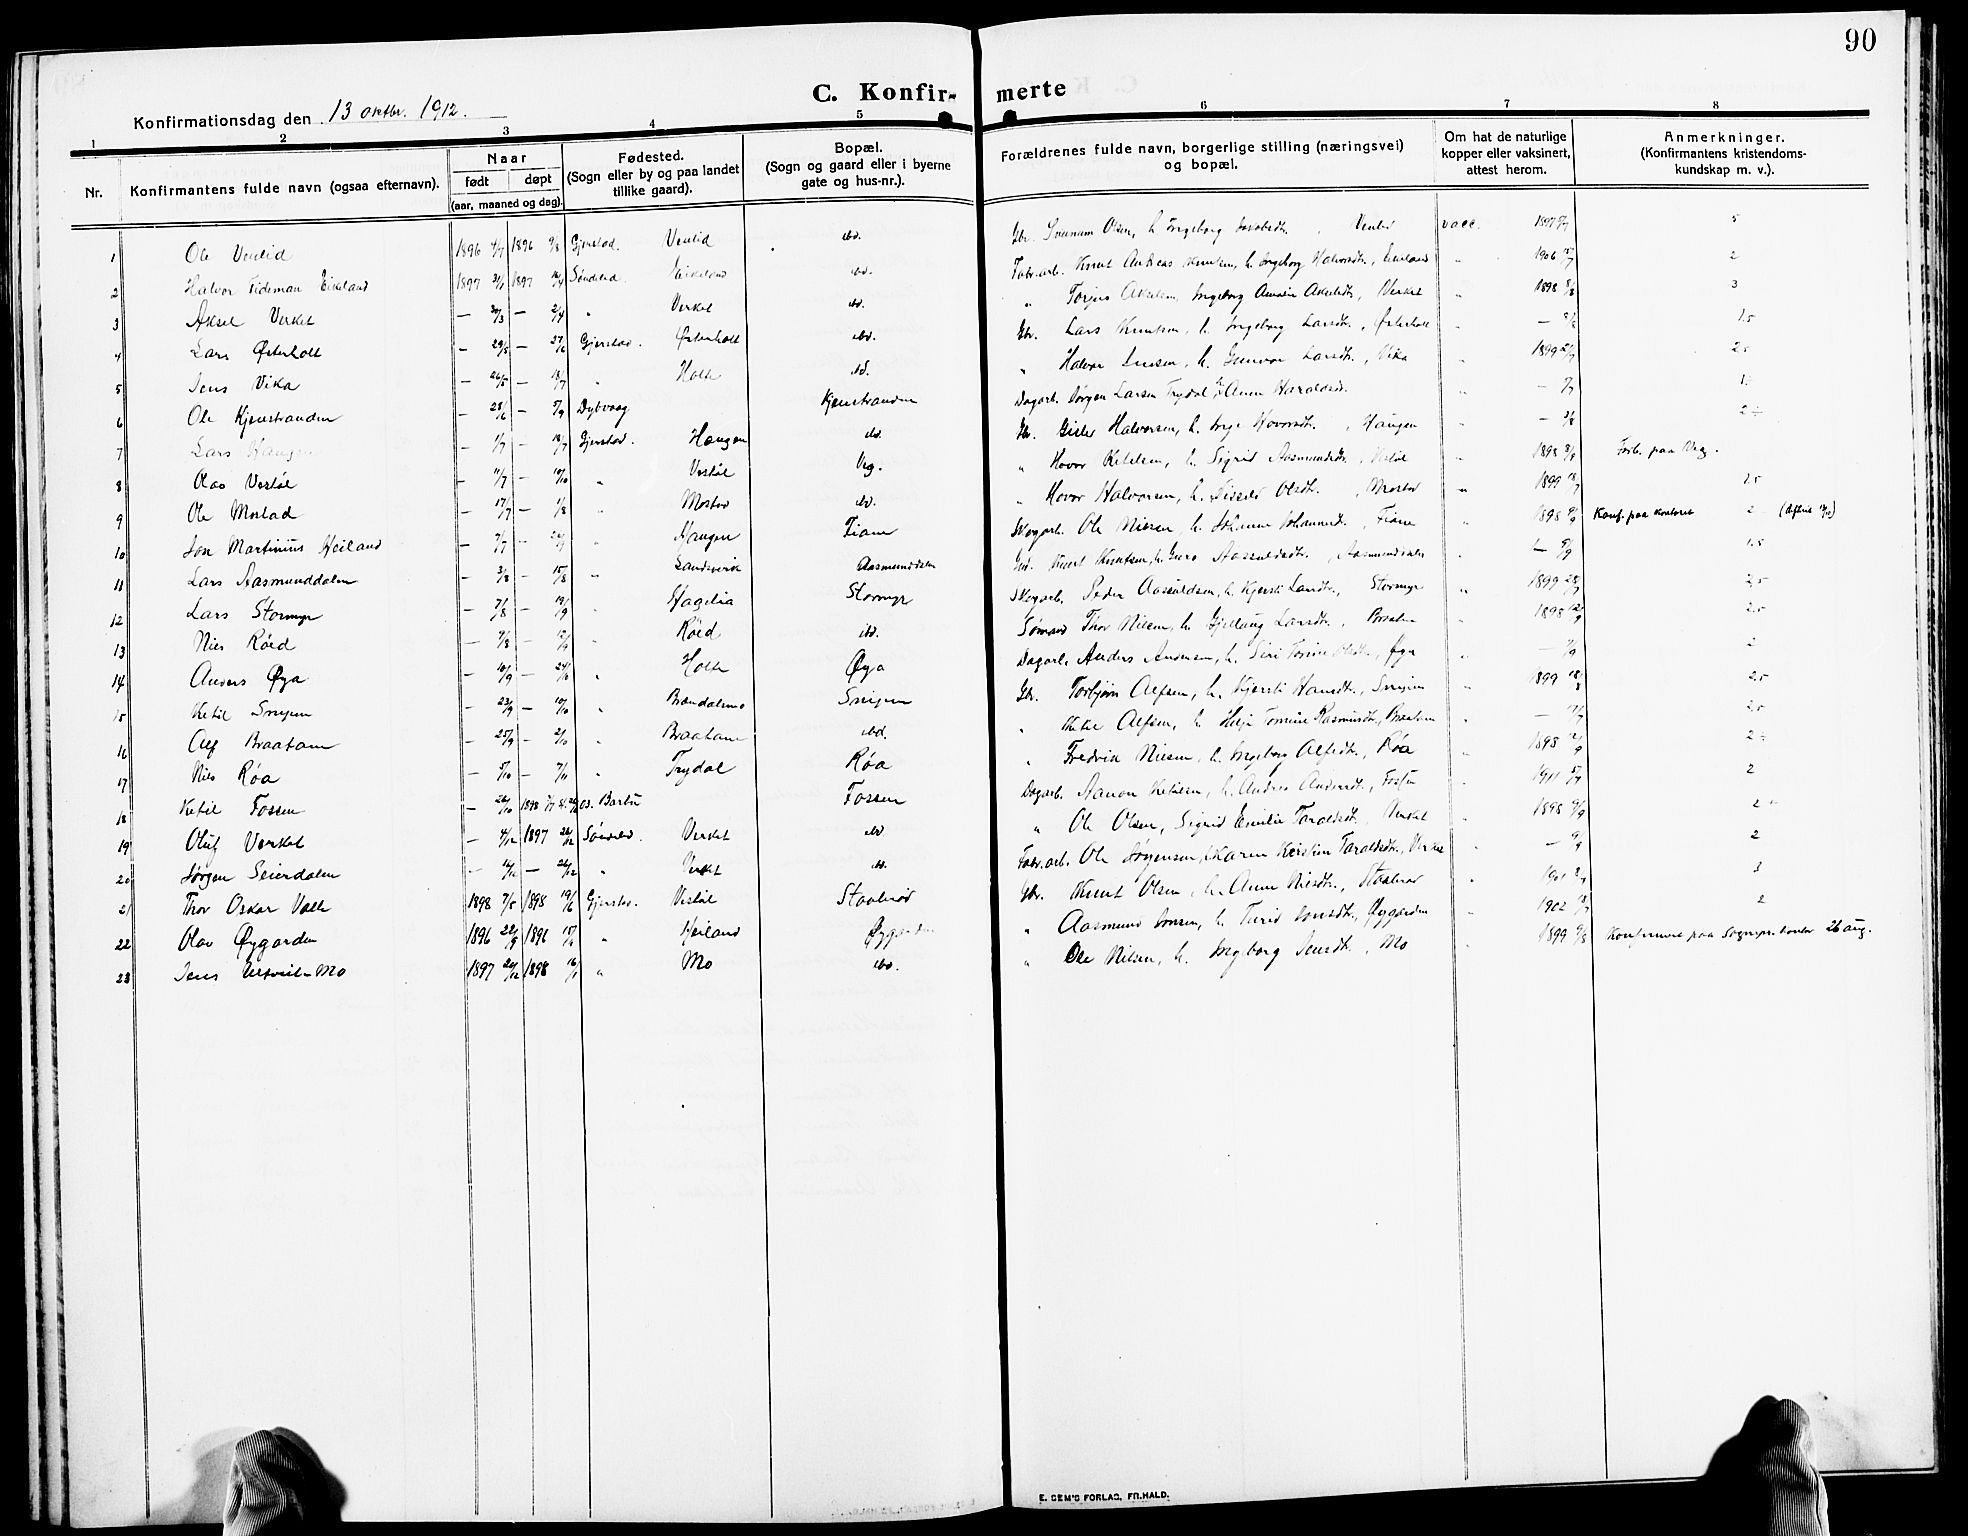 90
C. Konfir- merte
Konfirmationsdag den 13 oktbr. 1912.
1 2 3 4 5 6 7 8
Nr. Konfirmantens fulde navn (ogsaa efternavn). Naar født døpt (aar, maaned og dag). Fødested. (Sogn eller by og paa landet tillike gaard). Bopæl. (Sogn og gaard eller i byerne gate og hus-nr.). Forældrenes fulde navn, borgerlige stilling (næringsvei) og bopæl. Om hat de naturlige kopper eller vaksinert, attest herom. Anmerkninger. (Konfirmantens kristendoms- kundskap m. v.).
1 Ole 1896 4/7 1896 9/8 Gjerstad. ibd. Gbr. Olsen, h. Ingeborg vacc. 1897
2 Halvor Tideman Eikeland 1897 1897 Søndeled Eikeland ibd. Fabr.arb. Knut Andreas Knutsen, h. Ingeborg Halvorsdtr., Eikeland " 1906 2
3 Aksel Verket — 30/3 — 2/4 " Verket ibd. " Torjus Akselsen, Ingeborg Akseldtr., Verket " 1898 3
4 Lars Østerholt — 29/5 — 27/6 Gjerstad. Østerholt ibd. Gbr. Lars Knutsen, h. Ingeborg Larsdtr., Østerholt " — 1.5
5 Jens Vika — 26/5 — 18/7 " Holte ibd. " Halvor Jensen, h. Gunvor Larsdtr., Vika " 1899 2.5
6 Ole Kjenstranden — — 5/9 Dybvaag Kjenstranden Dagarb. Jørgen Larsen Trydal h. Anne Haraldsdtr. —
7 Lars Haugen — 1/7 — 18/7 Gjerstad. Haugen ibd. Gbr. Gisle Halvorsen, h. Inge Hovorsdtr., Haugen " —
8 Olav Vestøl — 11/7 — 10/10 " Vestøl Veg. " Hovor Ketilsen, h. Sigrid Aasmundsdtr., Vestøl " 1898 Forb. paa Veg.
9 Ole Mostad — 17/7 — 1/8 " Mostad ibd. " Hovor Halvorsen, h. Sissel Olsdtr., Mostad " 1899 2.5
10 Jon Martinius Heiland — 7/7 — " Haugen Fiane Skogarb. Ole Nilsen, h. Johanne Johannesdtr., Fiane " 1898 Konf. paa kontoret 2
11 Lars Aasmunddalen — 3/8 — 15/8 " Sandvik Aasmunddalen Gbr. Knut Knutsen, h. Guro Aasuldsdtr., Aasmunddalen " — 1.5
12 Lars Stormyr — 7/8 — 19/9 " Hagelia Stormyr Skogarb. Peder Aasuldsen, h. Kjersti Larsdtr., Stormyr " 1899 2.5
13 Nils Røed — 7/8 — 12/9 " Røed ibd. Sømand Thor Nilsen, h. Gjellaug Larsdtr., " 1898 12/9 2.5
14 Anders Øya — 10/9 — 24/10 " Holte Øya Dagarb. Anders Andersen, h. Siri Tomine Olsdtr., Øya " — 2
15 Ketil — 23/9 — 10/10 " Brændalsmo Gbr. Torbjørn Alfsen, h. Kjersti Hansdtr., " 1899 2.5
16 Alf Braaten — 25/9 — 2/10 " Braaten ibd. " Ketil Alfsen, h. Helje Tomine Rasmusdtr., Braaten " — 2.5
17 Nils Røa — 5/10 — 7/11 " Trydal Røa " Fredrik Nilsen, h. Ingeborg Alfsdtr., Røa " 1898 12/9
18 Ketil Fossen — 1898 Barbu Fossen Dagarb. Aanon Ketilsen, h. Andrea Andersdtr., Fossen " 1911 2
19 Oluf Verket — 4/12 1897 26/12 Søndeled. Verket ibd. " Ole Olsen, Sigrid Emilie Taraldsdtr., Verket " 1898 9/9
20 Jørgen Seierdalen — — 26/12 " Verket ibd. Fabr.arb. Ole Jørgensen, Karen Kirstine Taraldsdtr., Verket " — 9/9 2
21 Thor Oskar Valle 1898 7/5 1898 19/6 Gjerstad. Vestøl Gbr. Knut Olsen, h. Anne Nilsdtr., " 1901 3
22 Olav Øygarden 1896 1896 " Heiland Øygarden " Aasmund Jonsen, h. Turid Jonsdtr., Øygarden " 1902 2
23 Jens Mo 1897 1898 16/1 " Mo ibd. " Ole Nilsen, h. Ingeborg Jensdtr., Mo 1899 9/8 Konfirmert paa Sognepr. kontor 26 aug.
E. SEM'S FORLAG, FR.HALD.